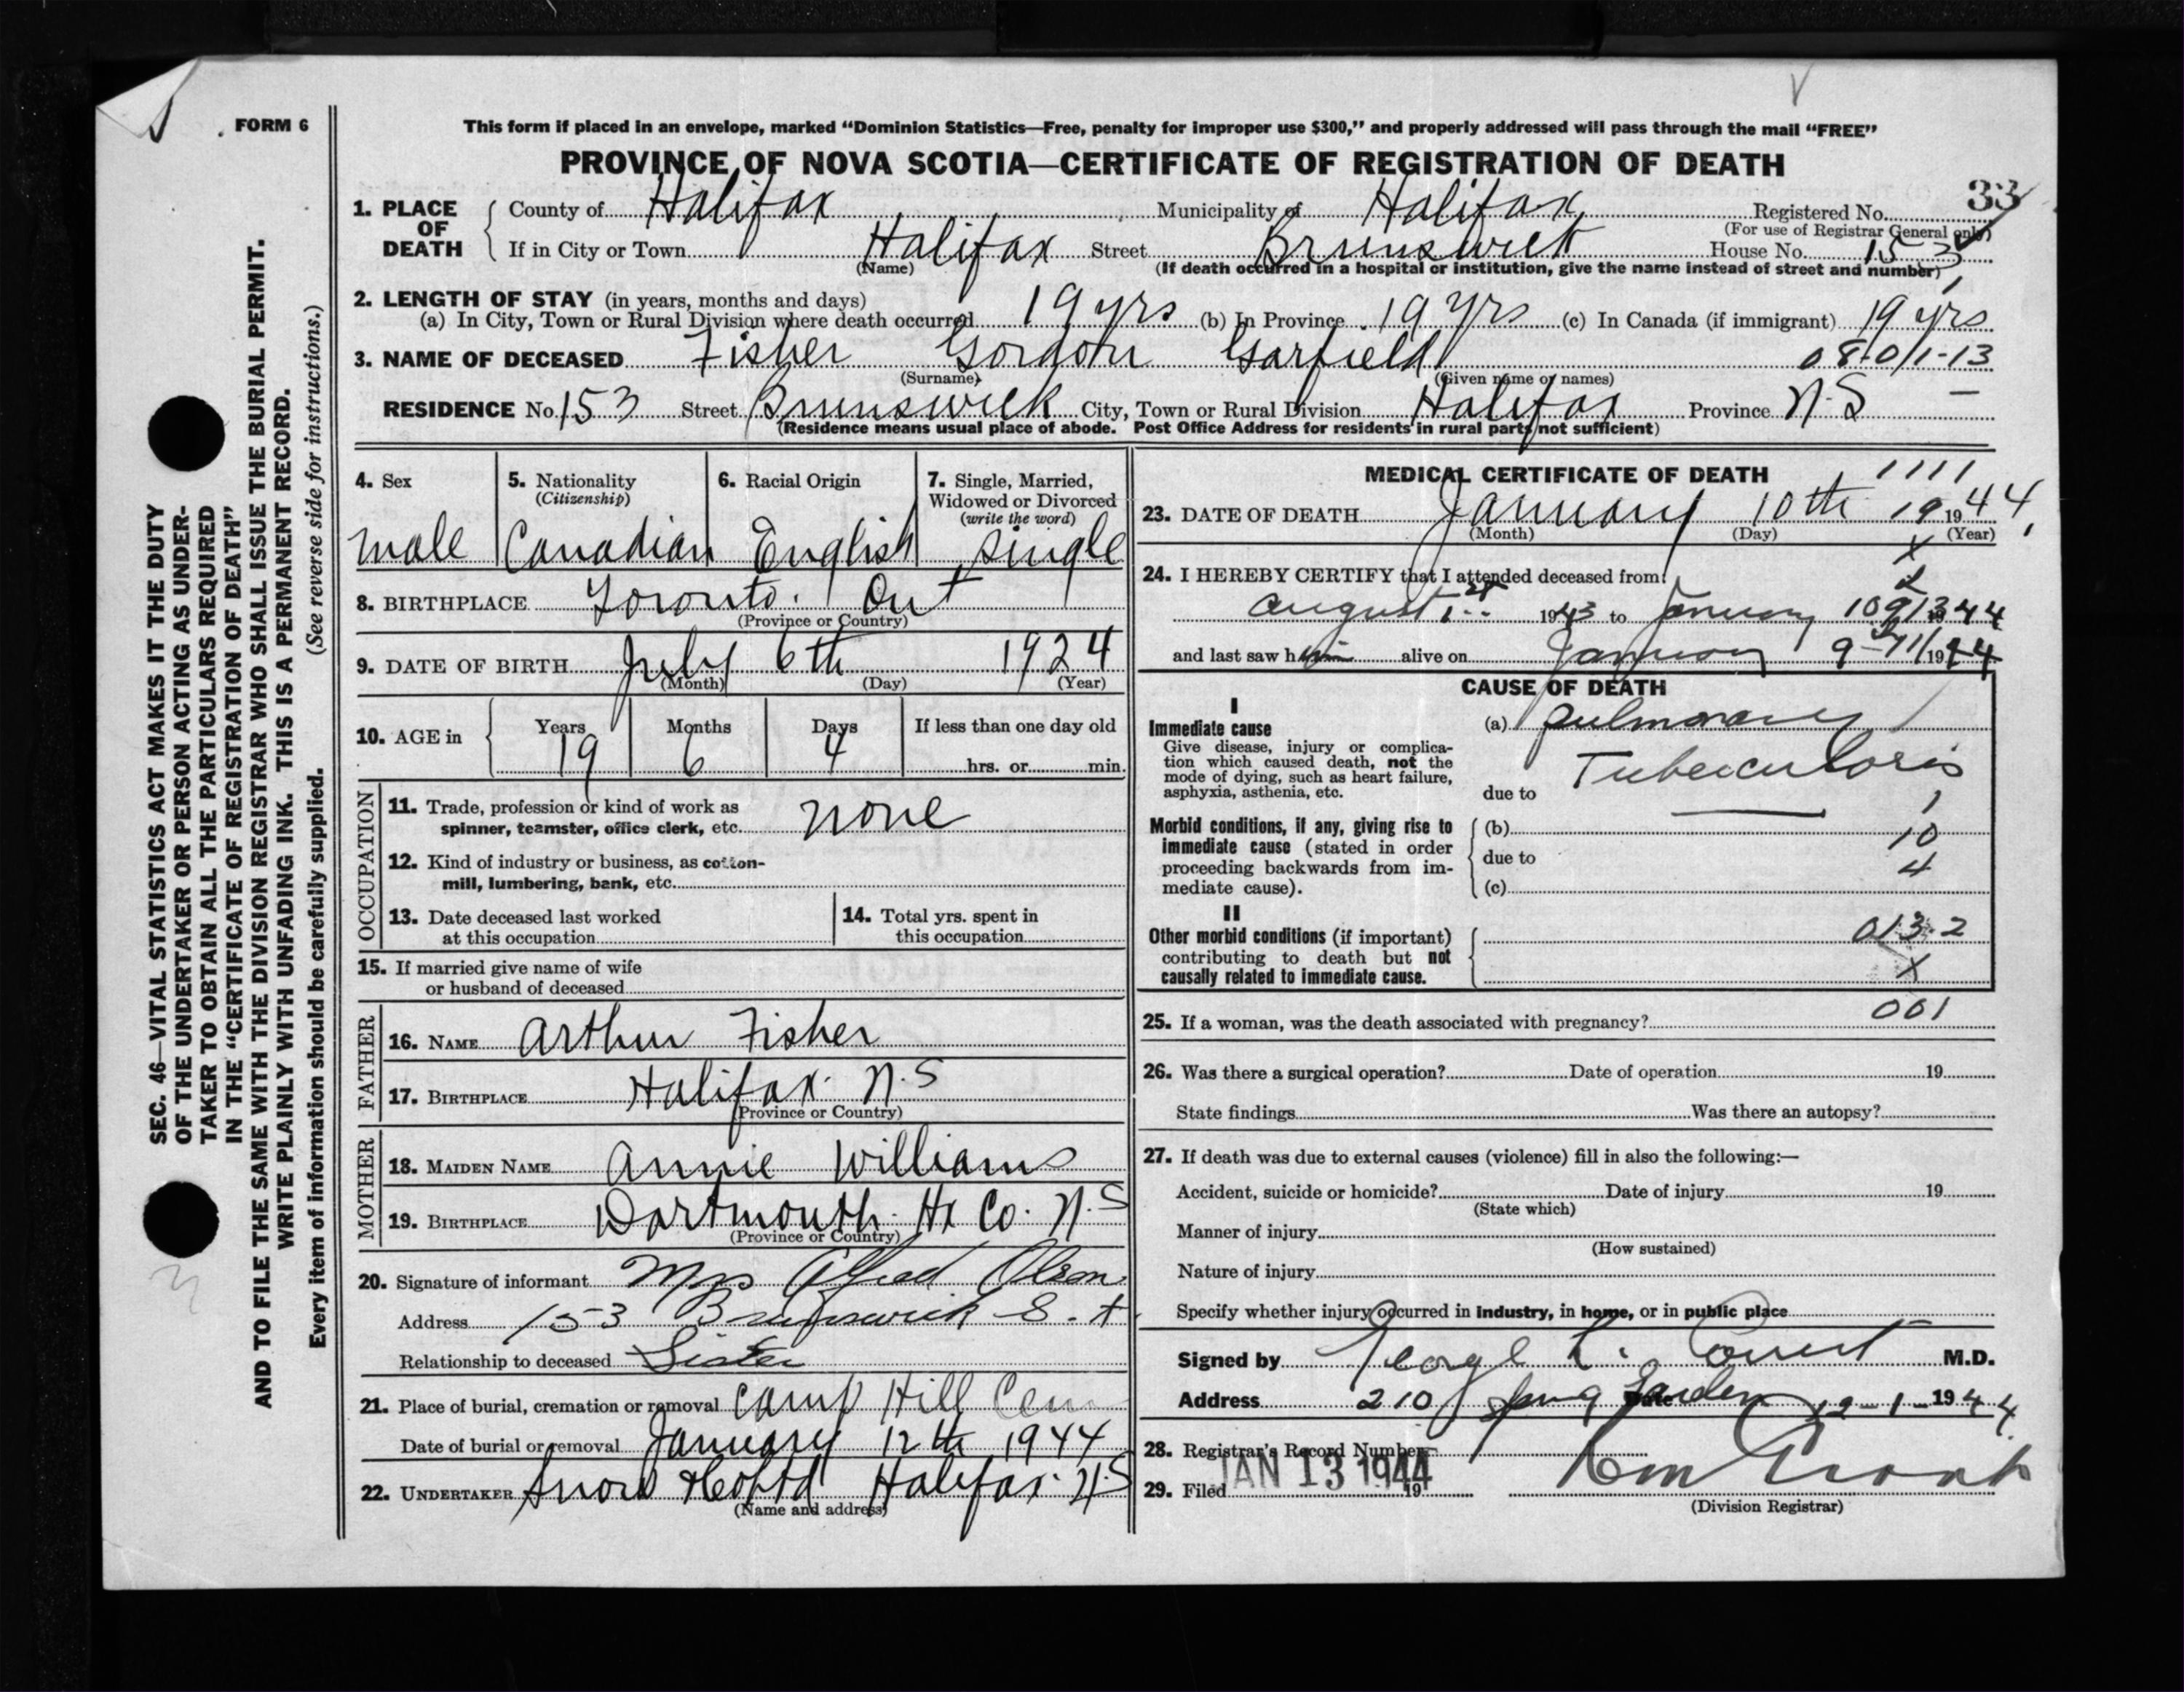 FORM 6
This form if placed in an envelope, marked “Dominion Statistics—Free, penalty for improper use $300,” and properly addressed will pass through the mail “FREE”
PROVINCE OF NOVA SCOTIA—CERTIFICATE OF REGISTRATION OF DEATH
33
1. PLACE OF DEATH County of Halifax Municipality of Halifax Registered No.
(For use of Registrar General only)
If in City or Town Halifax Street Brunswick House No. 153
(Name) (If death occurred in a hospital or institution, give the name instead of street and number)
2. LENGTH OF STAY (in years, months and days)
(a) In City, Town or Rural Division where death occurred 19 yrs (b) In Province 19 yrs (c) In Canada (if immigrant) 19 yrs
3. NAME OF DECEASED Fisher Gordon Garfield 08-011-13
(Surname) (Given name or names)
RESIDENCE No. 153 Street Brunswick City, Town or Rural Division Halifax Province N.S
(Residence means usual place of abode. Post Office Address for residents in rural parts not sufficient)
4. Sex 5. Nationality (Citizenship) 6. Racial Origin 7. Single, Married, Widowed or Divorced (write the word)
male Canadian English single
8. BIRTHPLACE Toronto. Ont
(Province or Country)
9. DATE OF BIRTH July 6th 1924
(Month) (Day) (Year)
10. AGE in Years Months Days If less than one day old
19 6 4 hrs. or min.
OCCUPATION
11. Trade, profession or kind of work as
spinner, teamster, office clerk, etc. none
12. Kind of industry or business, as cotton-
mill, lumbering, bank, etc.
13. Date deceased last worked at this occupation
14. Total yrs. spent in this occupation
15. If married give name of wife
or husband of deceased
FATHER
16. NAME Arthur Fisher
17. BIRTHPLACE Halifax. N.S
(Province or Country)
MOTHER
18. MAIDEN NAME Annie Williams
19. BIRTHPLACE Dartmouth. Hx Co. N.S
(Province or Country)
20. Signature of informant Mrs Alfred Olsen
Address 153 Brunswick S.t
Relationship to deceased Sister
21. Place of burial, cremation or removal Camp Hill Cem
Date of burial or removal January 12th 1944
22. UNDERTAKER Snow Halifax. N.S
(Name and address)
MEDICAL CERTIFICATE OF DEATH
1111
23. DATE OF DEATH January 10th 19 1944
(Month) (Day) (Year)
x
24. I HEREBY CERTIFY that I attended deceased from:
August 1943 to January 10 1944
and last saw him alive on January 9 1944
CAUSE OF DEATH
I
Immediate cause
Give disease, injury or complica-
tion which caused death, not the
mode of dying, such as heart failure,
asphyxia, asthenia, etc.
(a) pulmonary
Tuberculosis
due to
1
Morbid conditions, if any, giving rise to
immediate cause (stated in order
proceeding backwards from im-
mediate cause).
(b) 10
due to 4
(c)
II
Other morbid conditions (if important)
contributing to death but not
causally related to immediate cause.
013.2
x
25. If a woman, was the death associated with pregnancy? 001
26. Was there a surgical operation? Date of operation 19
State findings Was there an autopsy?
27. If death was due to external causes (violence) fill in also the following:—
Accident, suicide or homicide? Date of injury 19
(State which)
Manner of injury
(How sustained)
Nature of injury
Specify whether injury occurred in industry, in home, or in public place
Signed by George M.D.
Address 210 Spring Garden Date 12-1-1944
28. Registrar's Record Number
29. Filed JAN 13 1944 19
(Division Registrar)
SEC. 46—VITAL STATISTICS ACT MAKES IT THE DUTY
OF THE UNDERTAKER OR PERSON ACTING AS UNDER-
TAKER TO OBTAIN ALL THE PARTICULARS REQUIRED
IN THE “CERTIFICATE OF REGISTRATION OF DEATH”
AND TO FILE THE SAME WITH THE DIVISION REGISTRAR WHO SHALL ISSUE THE BURIAL PERMIT.
WRITE PLAINLY WITH UNFADING INK. THIS IS A PERMANENT RECORD.
Every item of information should be carefully supplied. (See reverse side for instructions.)